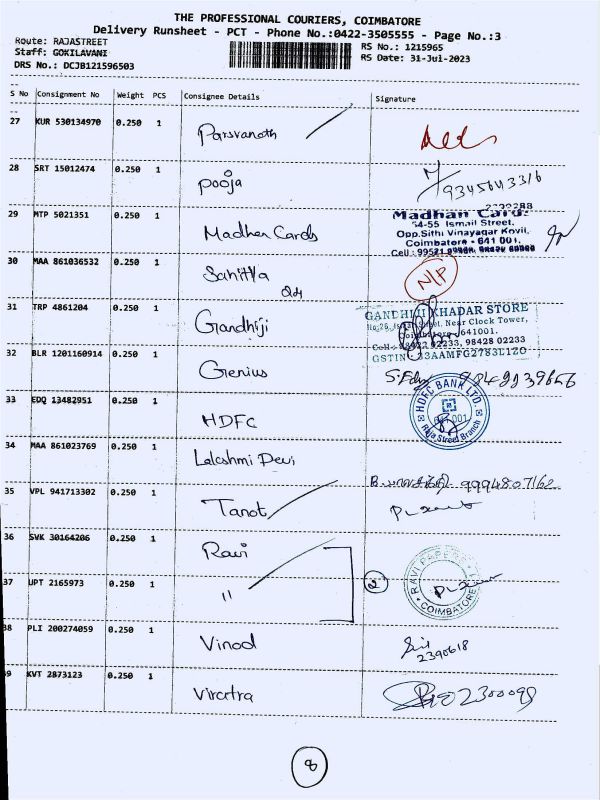 THE PROFESSIONAL COURIERS, COIMBATORE
Delivery Runsheet - PCT - Phone No.:0422-3505555 - Page No.:3
Route: RAJASTREET
Staff: GOKILAVANI
DRS No.: DCJB121596503
RS No.: 1215965
RS Date: 31-Jul-2023
S No Consignment No Weight PCS Consignee Details Signature
27 KUR 530134970 0.250 1 Parsvanath
28 SRT 15012474 0.250 1 Pooja 9345643316
29 MTP 5021351 0.250 1 Madhan Cards
Madhan Card.
54-55 Ismail Street,
Opp.Sithi Vinayagar Kovil,
Coimbatore - 641 001.
30 MAA 861036532 0.250 1 N/P
31 TRP 4861204 0.250 1 Gandhiji
GANDHIJI KHADAR STORE
Near Clock Tower,
Coimbatore 641001.
02233, 98428 02233
GSTIN 33AAMFG2783L1ZO
32 BLR 1201160914 0.250 1 Genius
33 EDQ 13482951 0.250 1 HDFC
HDFC BANK LTD.
Raja Street Branch
34 MAA 861023769 0.250 1 Lakshmi Devi
9994807162
35 VPL 941713302 0.250 1 Tanot
36 SVK 30164206 0.250 1 Ravi
37 UPT 2165973 0.250 1 "
2
RAVI PAPER
COIMBATORE
38 PLI 200274059 0.250 1 Vinod
2390618
39 KVT 2873123 0.250 1
8